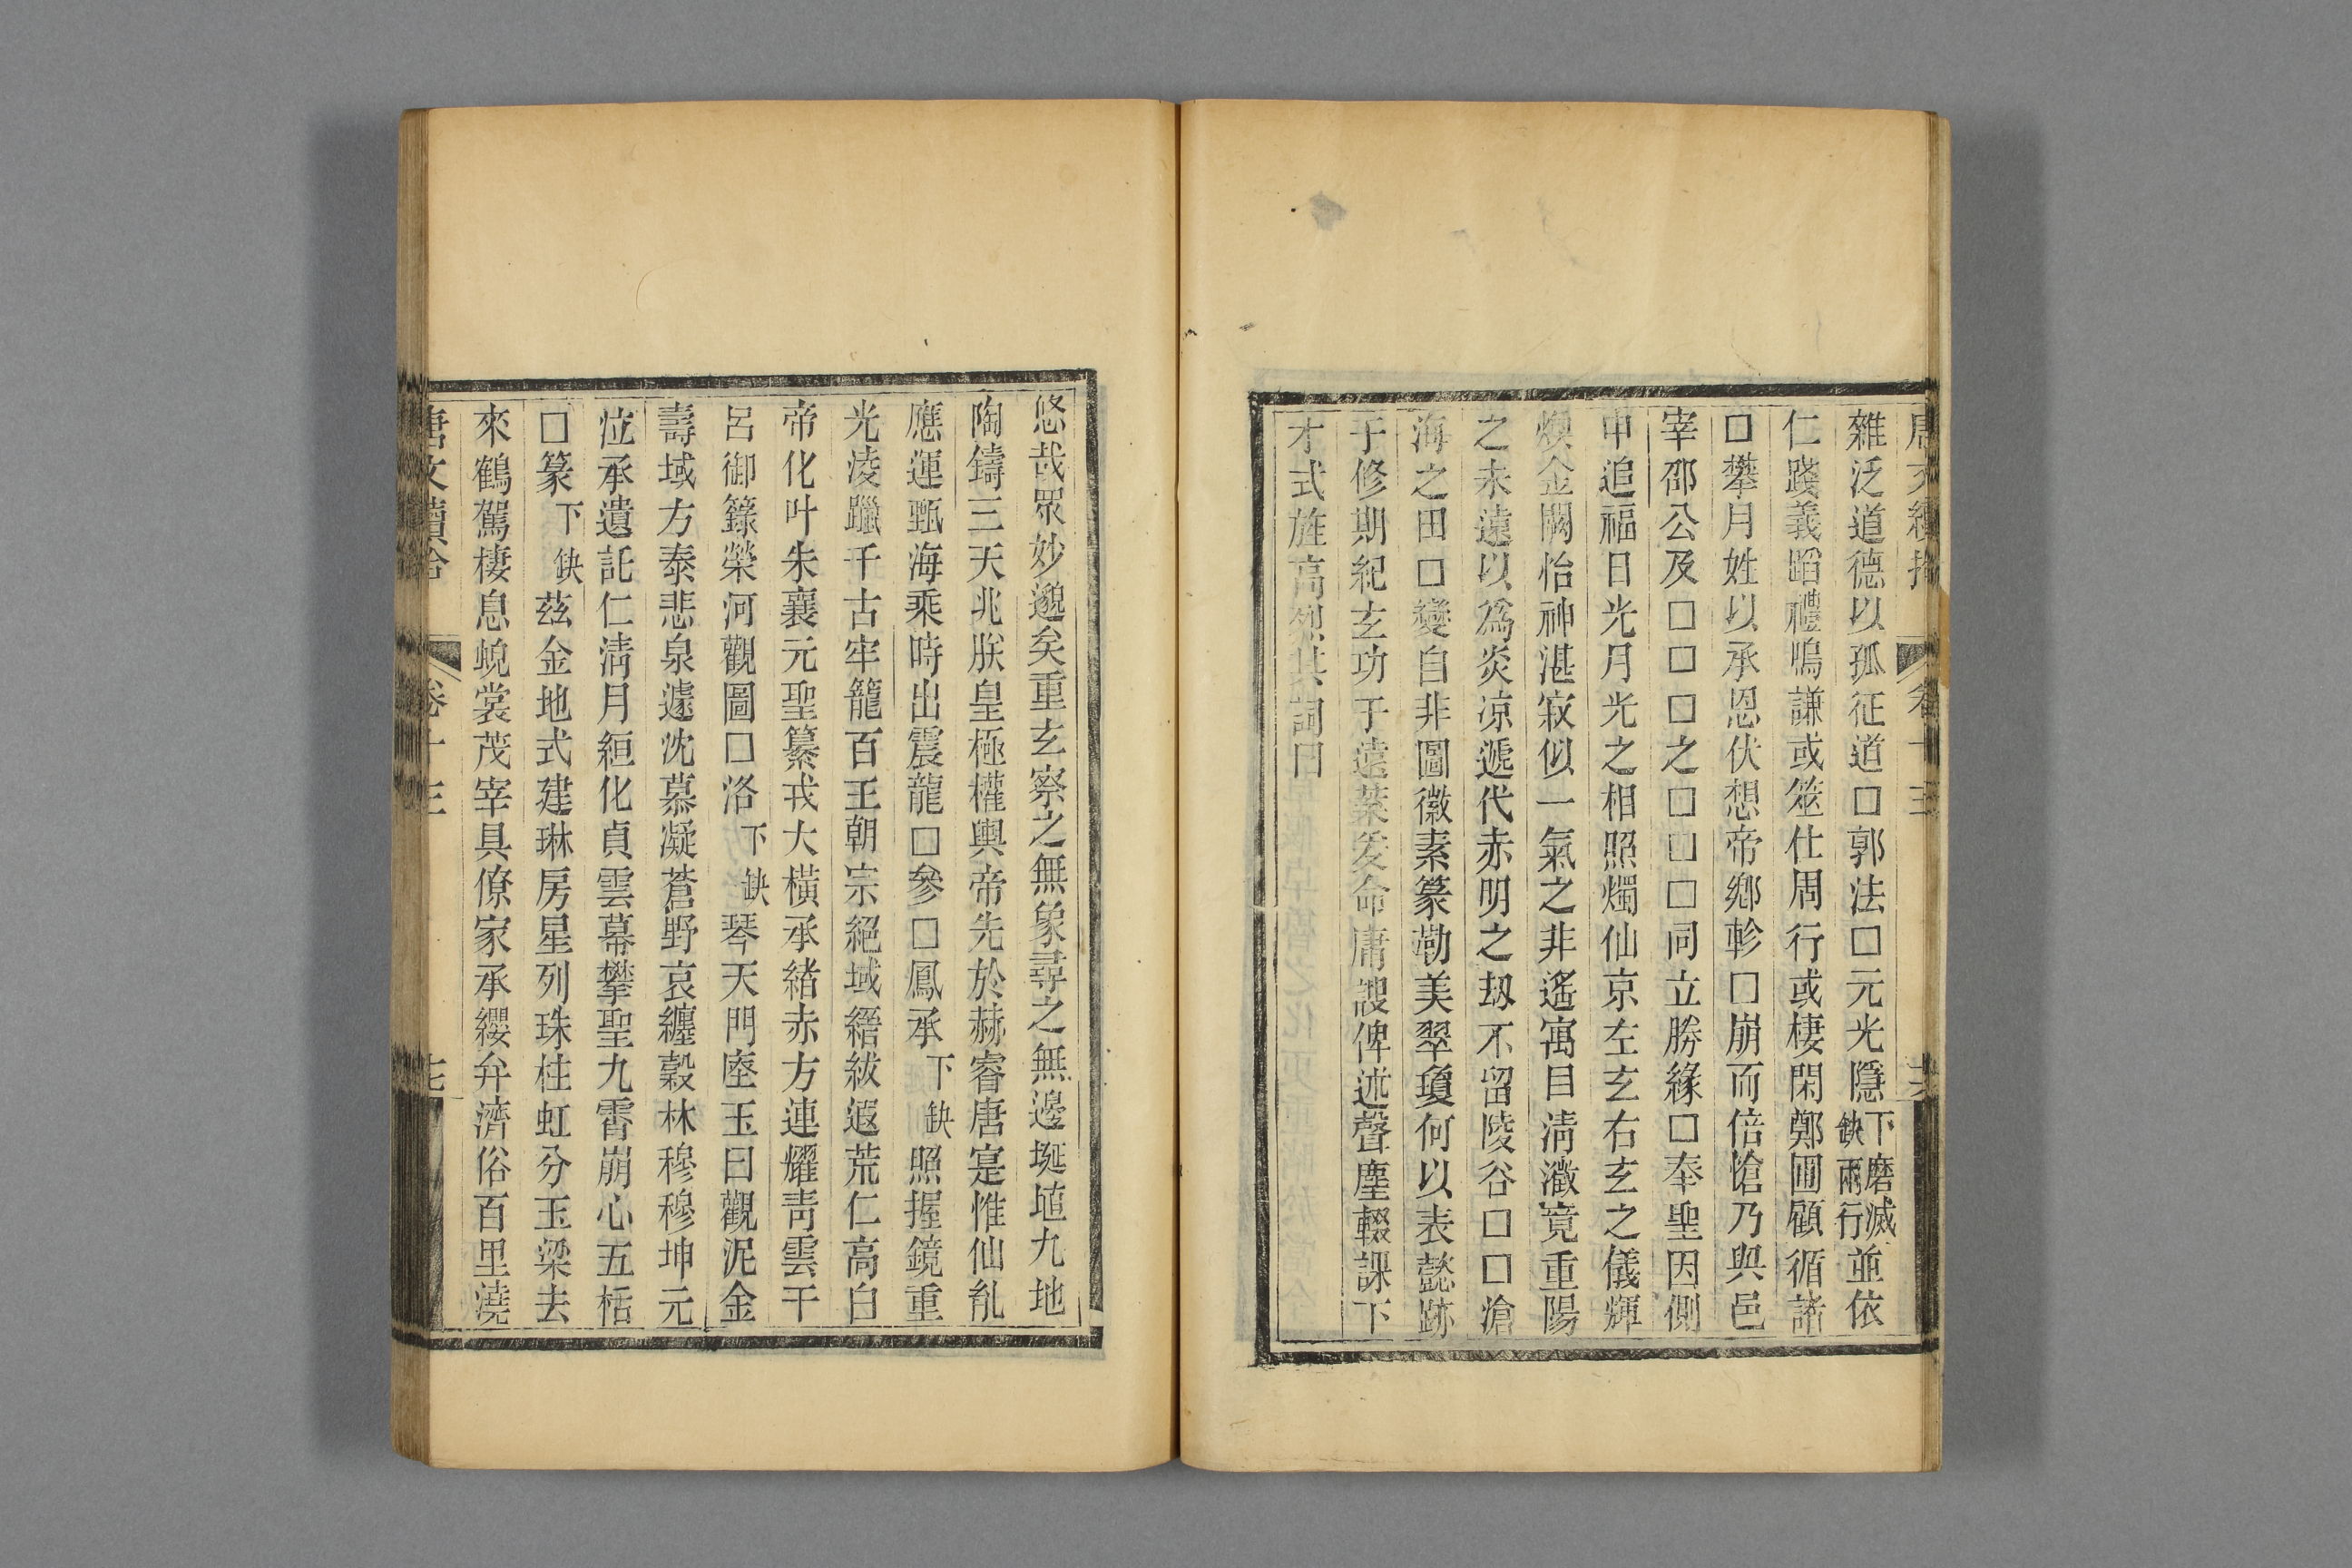 雜泛道德以孤征道□郭法□元光隱下磨滅缺兩行並依
仁踐義蹈禮鳴謙或筮仕周行或棲閑鄭圃顧循諸
□攀月姓以承恩伏想帝鄉軫□崩而倍愴乃與邑
宰邵公及□□□之□□□同立勝緣□奉聖因側
申追福日光月光之相照燭仙京左玄右玄之儀輝
煥金闕怡神湛寂似一氣之非遙寓目淸澂竟重陽
之未遠以爲炎涼遞代赤明之刼不留陵谷□□滄
海之田□變自非圖徽素篆勒美翠瓊何以表懿跡
于修期紀玄功于遠葉爰命庸謏俾述聲塵輟課下
才式旌高烈其詞曰
悠哉眾妙邈矣重玄察之無象尋之無邊埏埴九地
陶鑄三天兆朕皇極權輿帝先於赫睿唐寔惟仙胤
應運甄海乘時出震龍□參□鳳承下缺照握鏡重
光淩躐千古牢籠百王朝宗絕域縉紱遐荒仁高白
帝化叶朱襄元聖纂戎大橫承緒赤方連耀靑雲干
呂御籙榮河觀圖□洛下缺琴天門座玉日觀泥金
壽域方泰悲泉遽沈慕凝蒼野哀纏穀林穆穆坤元
㳡承遺託仁淸月絙化貞雲幕攀聖九霄崩心五桰
□篆下缺茲金地式建琳房星列珠柱虹分玉梁去
來鶴駕棲息蜺裳茂宰具僚家承纓弁濟俗百里澆
唐文續拾
卷十三